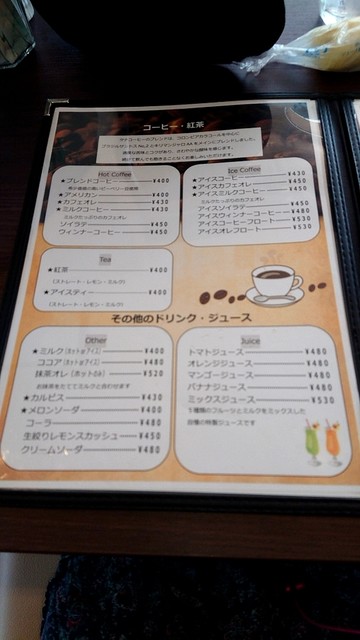 コーヒー・紅茶
Hot Coffee
★ブレンドコーヒー ¥400
★アメリカン ¥400
★カフェオレ ¥430
★ミルクコーヒー ¥430
ミルクたっぷりのカフェオレ
ソイラテ ¥450
ウィンナーコーヒー ¥450
Ice Coffee
★アイスコーヒー ¥430
★アイスカフェオレ ¥450
★アイスミルクコーヒー ¥450
ミルクたっぷりのカフェオレ
アイスソイラテ ¥450
アイスウィンナーコーヒー ¥480
アイスコーヒーフロート ¥530
アイスオレフロート ¥530
Tea
★紅茶 ¥400
(ストレート・レモン・ミルク)
★アイスティー ¥400
(ストレート・レモン・ミルク)
その他のドリンク・ジュース
Other
★ミルク(ホットorアイス) ¥400
ココア(ホットorアイス) ¥480
抹茶オレ(ホットのみ) ¥520
お抹茶をたててミルクと合わせます
★カルピス ¥430
★メロンソーダ ¥400
コーラ ¥480
生絞りレモンスカッシュ ¥450
クリームソーダ ¥480
Juice
トマトジュース ¥480
オレンジジュース ¥480
マンゴージュース ¥480
バナナジュース ¥480
ミックスジュース ¥530
5種類のフルーツとミルクをミックスした
自慢の特製ジュースです